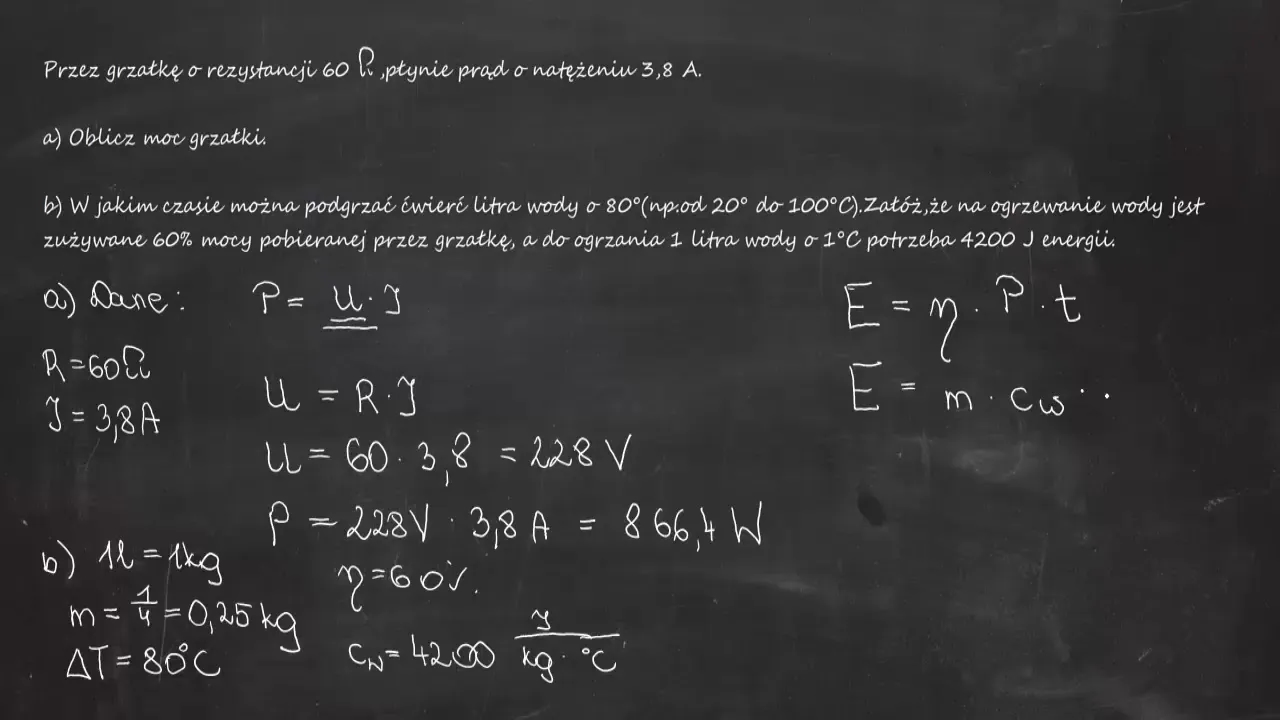 Przez grzałkę o rezystancji 60 Ω ,płynie prąd o natężeniu 3,8 A.
a) Oblicz moc grzałki.
b) W jakim czasie można podgrzać ćwierć litra wody o 80°(np.od 20° do 100°C).Załóż,że na ogrzewanie wody jest
zużywane 60% mocy pobieranej przez grzałkę, a do ogrzania 1 litra wody o 1°C potrzeba 4200 J energii.
a) Dane:
R=60Ω
J=3,8A
P= U·J
U = R·J
U= 60·3,8 = 228 V
P = 228V · 3,8 A = 866,4 W
E = η · P · t
E = m · cw · ·
b) 1l=1kg
m= 1/4 =0,25 kg
ΔT=80°C
η=60%
cw= 4200 J/kg·°C